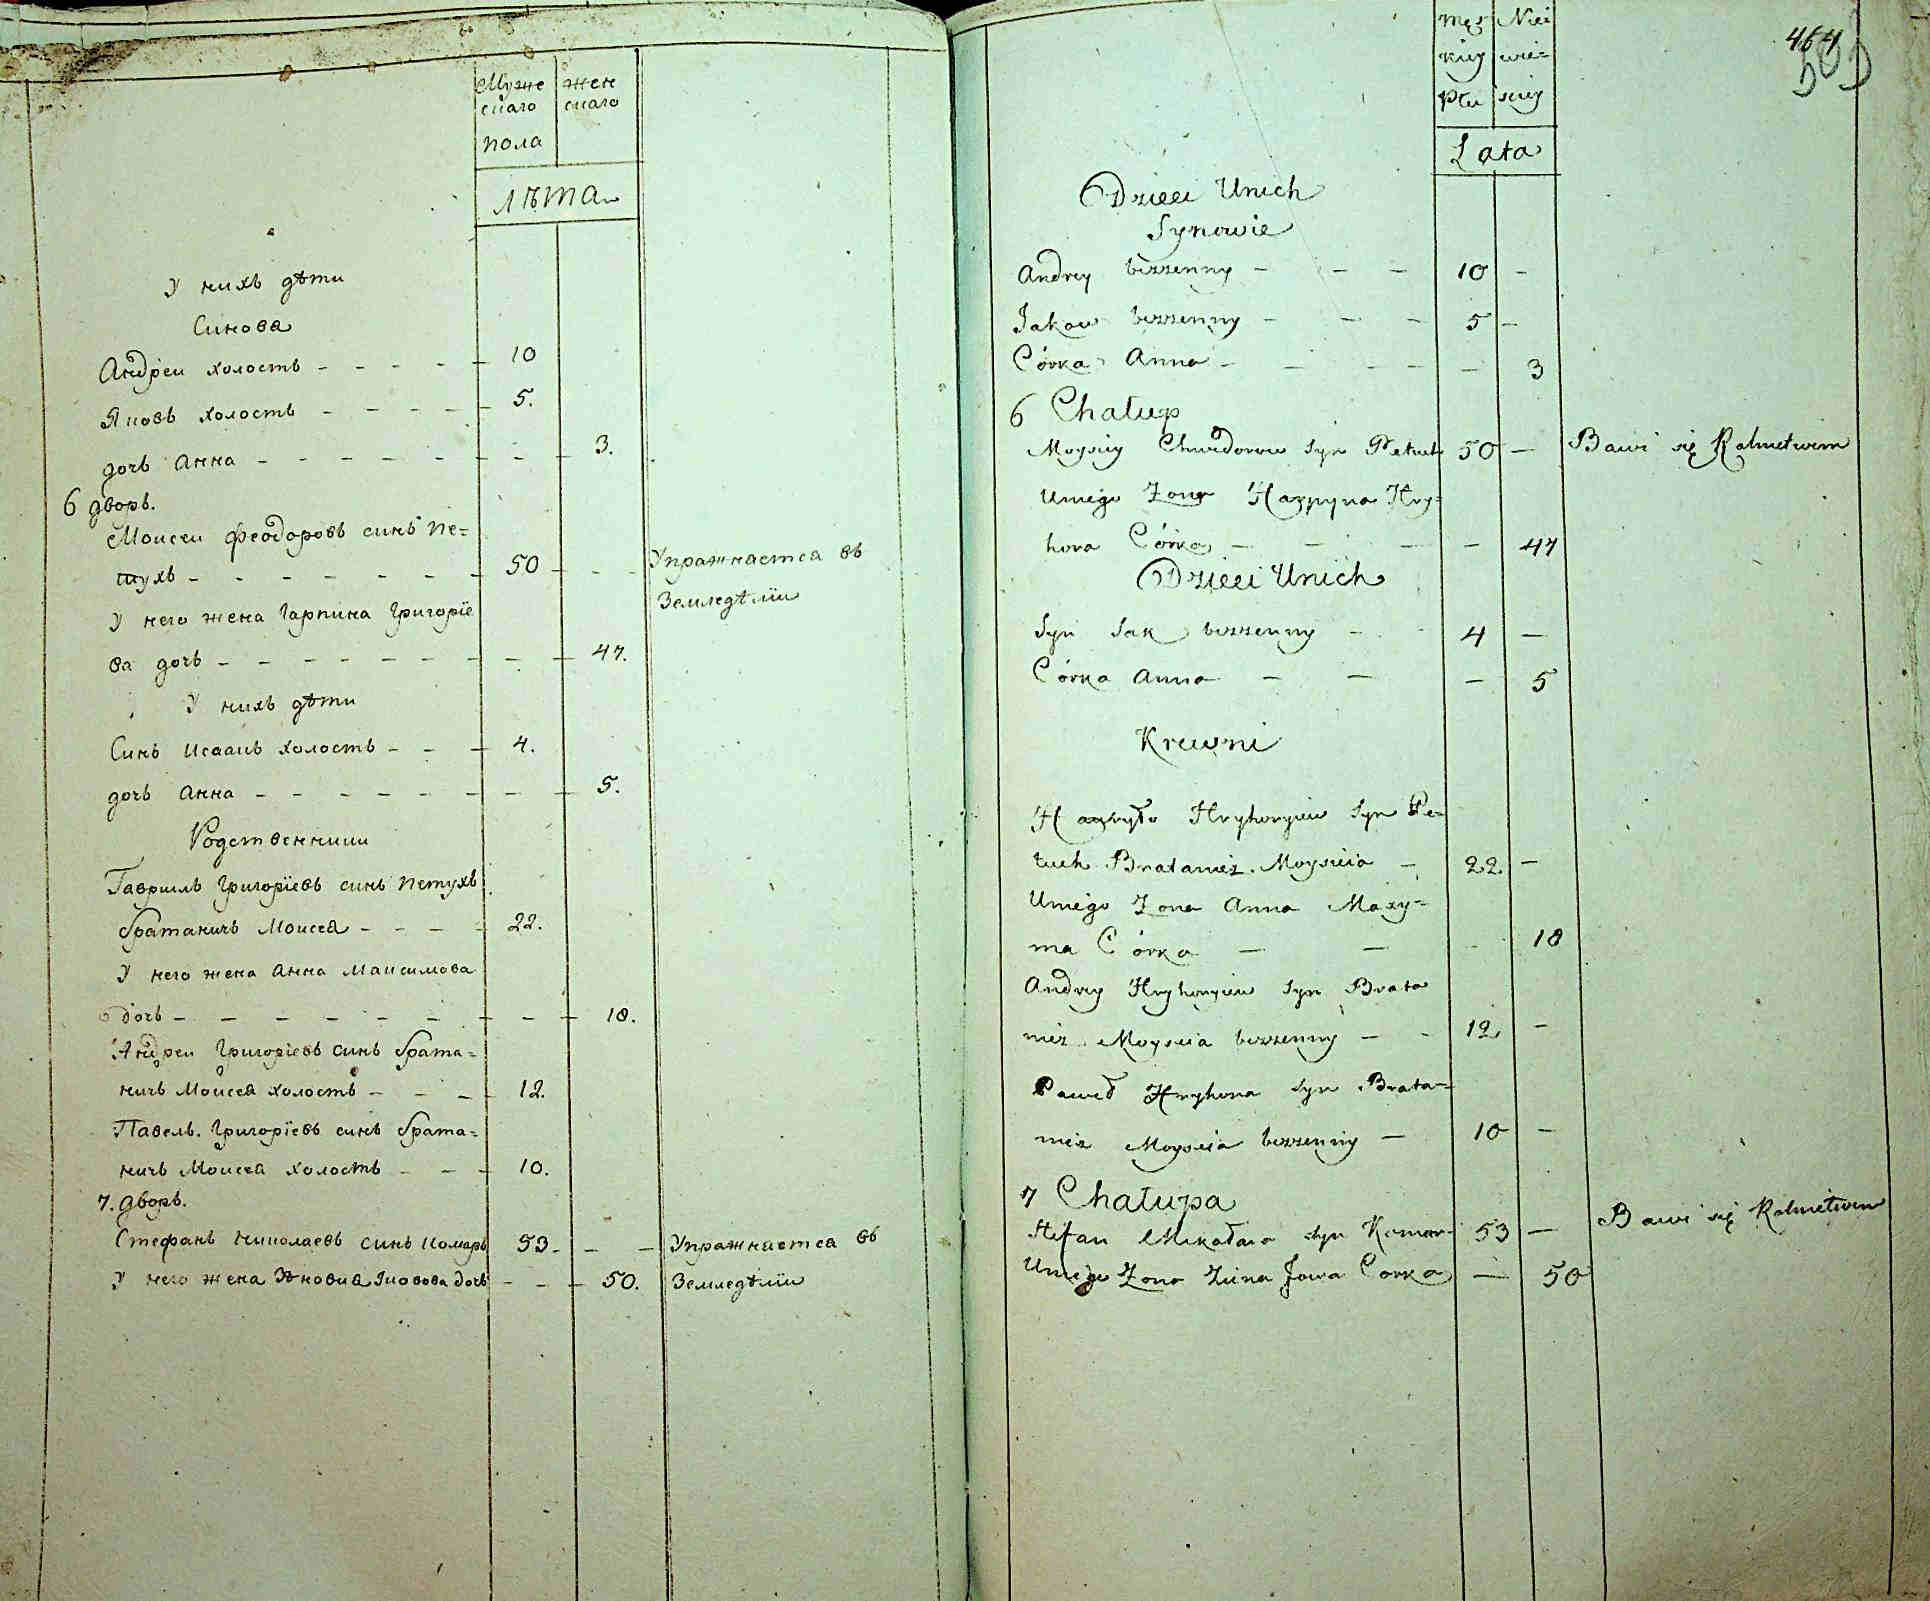 Муже
скаго
пола
жен
скаго
лѣта
У нихъ дѣти
Синова
Андреи холостъ - - - - 10
Яковъ холостъ - - - - 5.
дочь Анна - - - - - - - 3.
6 дворъ.
Моисеи Феодоровъ синъ Пе=
тухъ - - - - - - - 50 - - - Упражнаетса въ
У него жена Гарпина Григорïе
Земледѣлïи
ва дочь - - - - - - - - 47.
У нихъ дѣти
Синъ Исаакъ холостъ - - - 4.
дочь Анна - - - - - - - - 5.
Родственники
Гавриилъ Григорïевъ синъ Петухъ
братаничъ Моисея - - - - 22.
У него жена Анна Максимова
дочь - - - - - - - - 18.
Андреи Григорïевъ синъ брата=
ничъ Моисея холостъ - - - 12.
Павелъ Григорïевъ синъ брата=
ничъ Моисея холостъ - - - 10.
7. дворъ.
Стефанъ Николаевъ синъ Комаръ 53 - - - Упражнаетса въ
У него жена Зѣновия Iововa дочь - - - 50. Земледѣлïи
464
Męz
kiey
Płci
Nie
wie=
skiey
Lata
Dzieci Unich
Synowie
Andrey bezzenny - - - 10 -
Jakow bezzenny - - - 5 -
Córka Anna - - - - - 3
6 Chałup
Moysiey Chwedorow Syn Petuch 50 - Bawi się Rolnictwem
Uniego Zona Harpyna Hry=
hora Córka - - - - - 47
Dzieci Unich
Syn Isak bezzenny - - 4 -
Córka Anna - - - 5
Krewni
Hawryło Hryhoryiew Syn Pe=
tuch Bratanicz Moysieia - 22 -
Uniego Zona Anna Maxy=
ma Córka - - - 18
Andrey Hryhoryiew Syn Brata
nicz Moysieia bezzenny - - 12 -
Paweł Hryhora Syn Brata=
nicz Moysieia bezzenny - 10 -
7 Chałupa
Stefan Mikołaia Syn Komar 53 - Bawi się Rolnictwem
Uniego Zona Zina Jowa Corka - 50